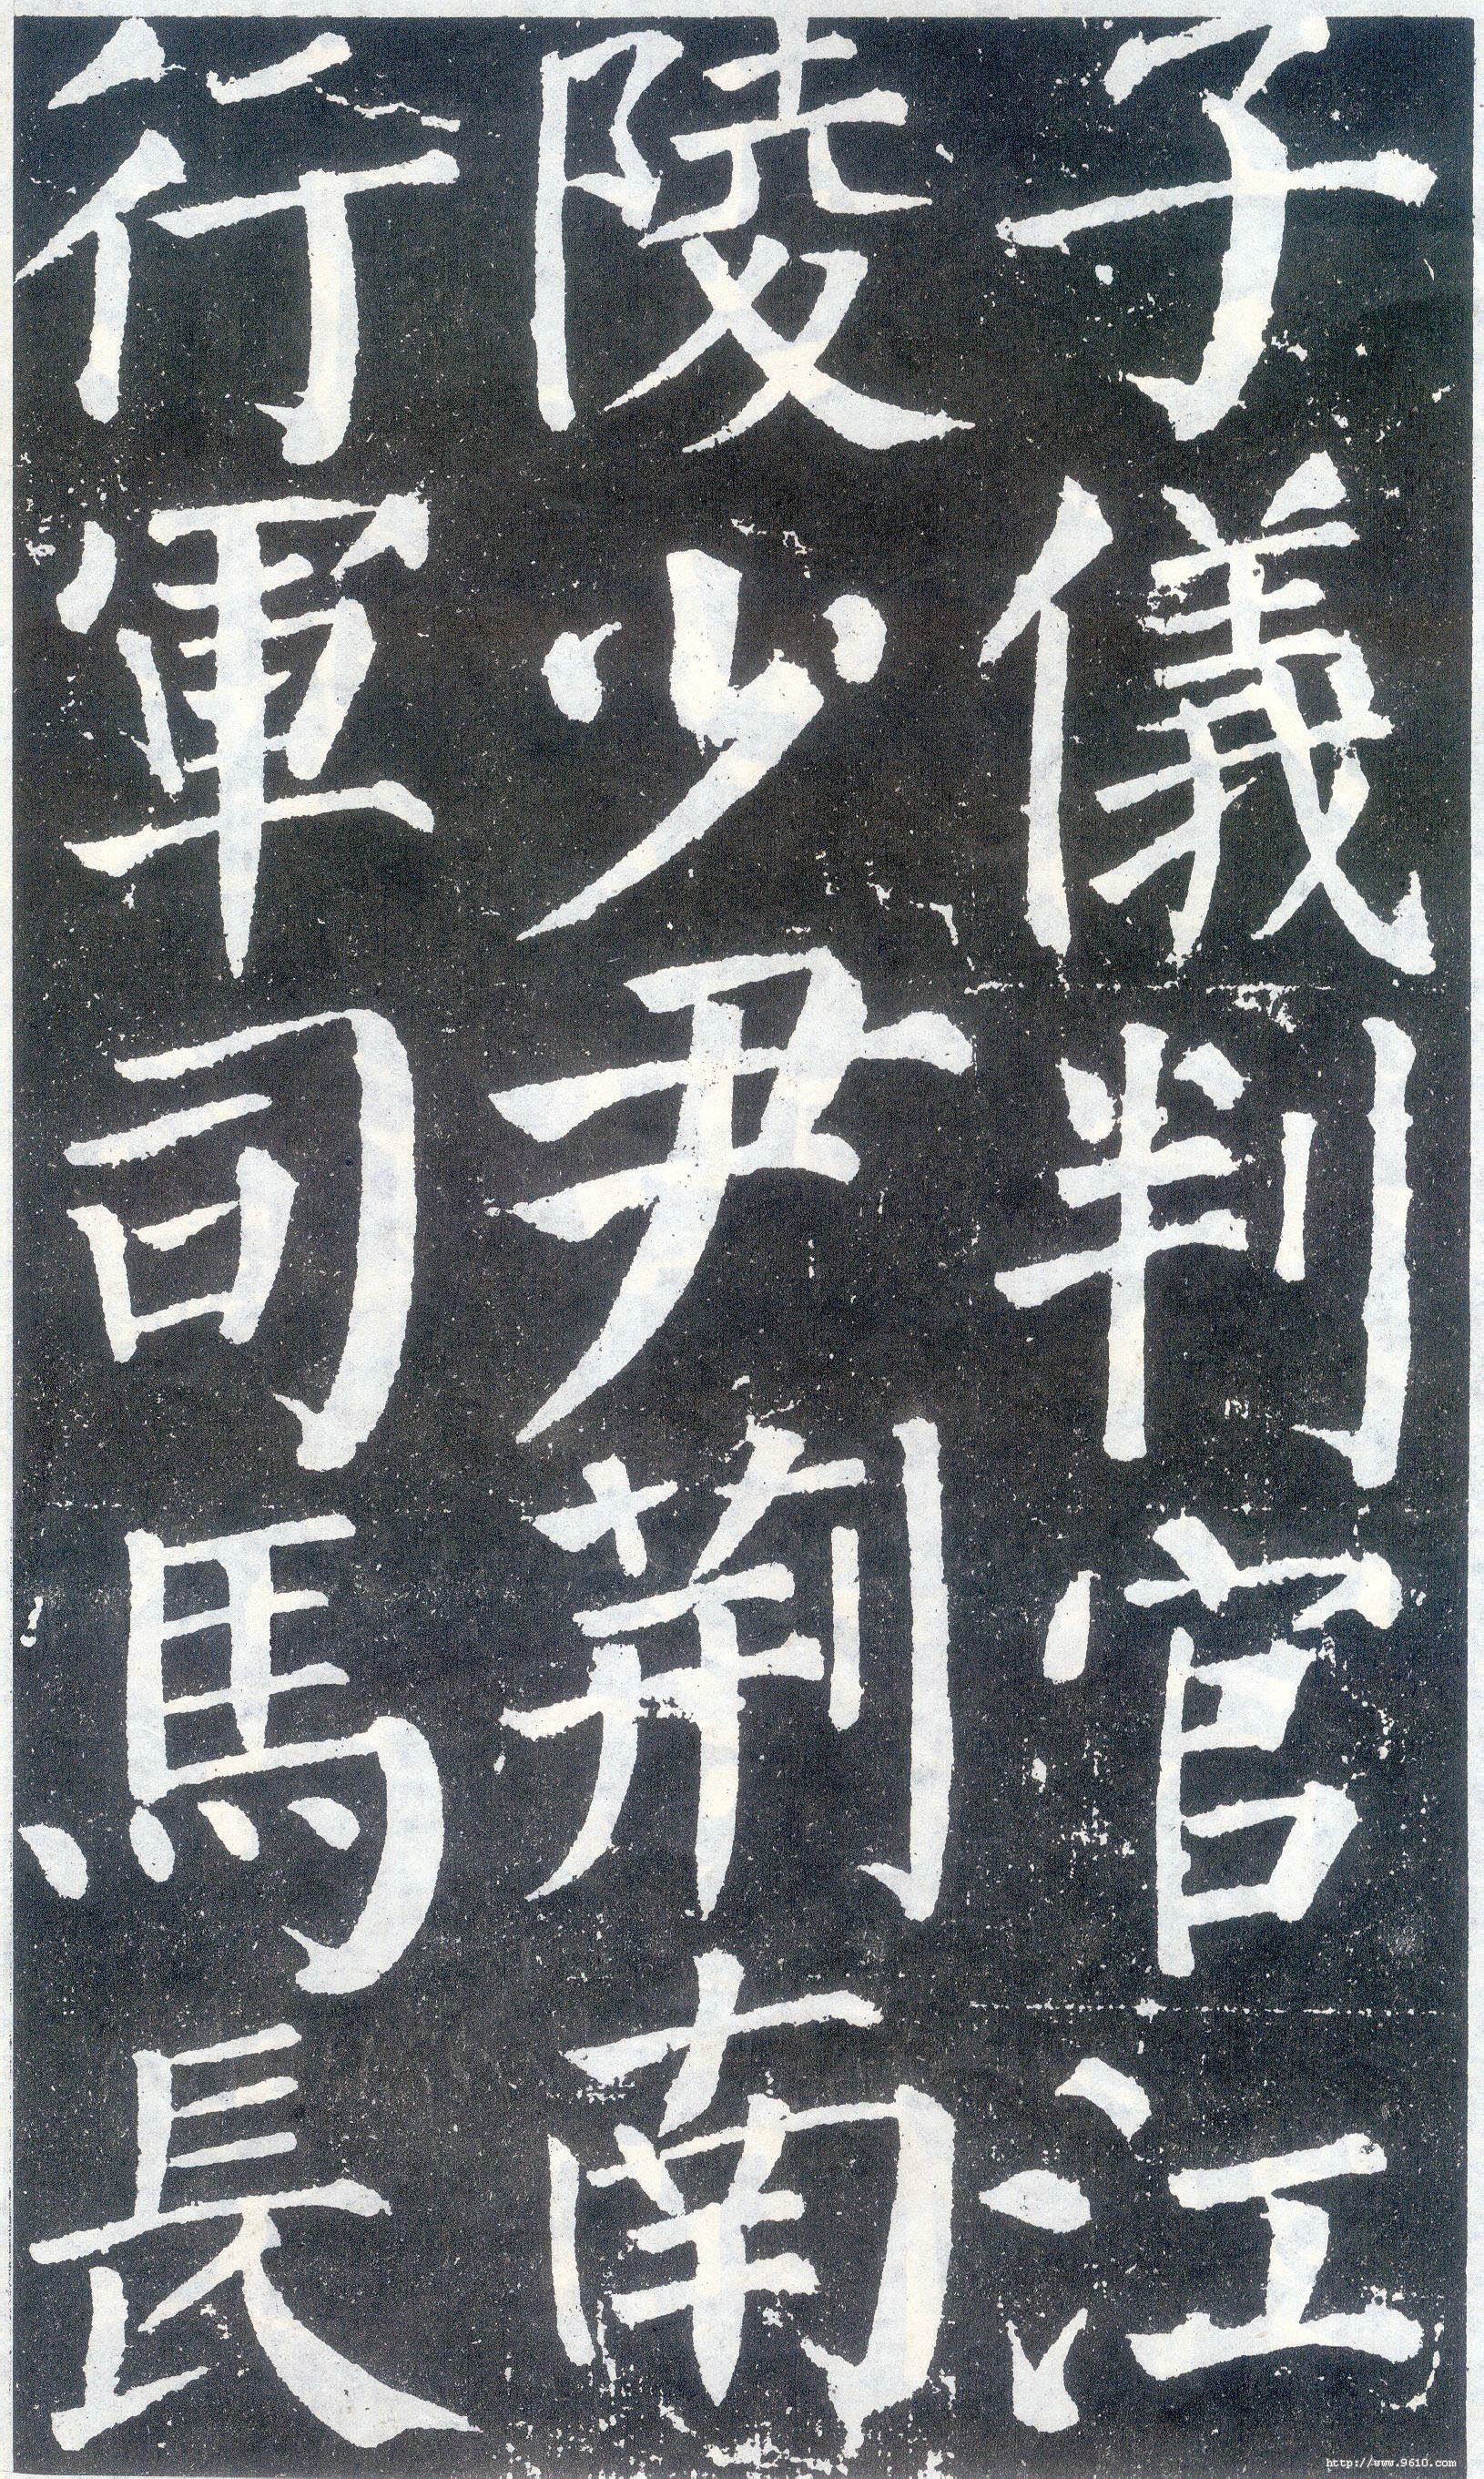 子儀判官江
陵少尹荊南
行軍司馬長
http://www.9610.com